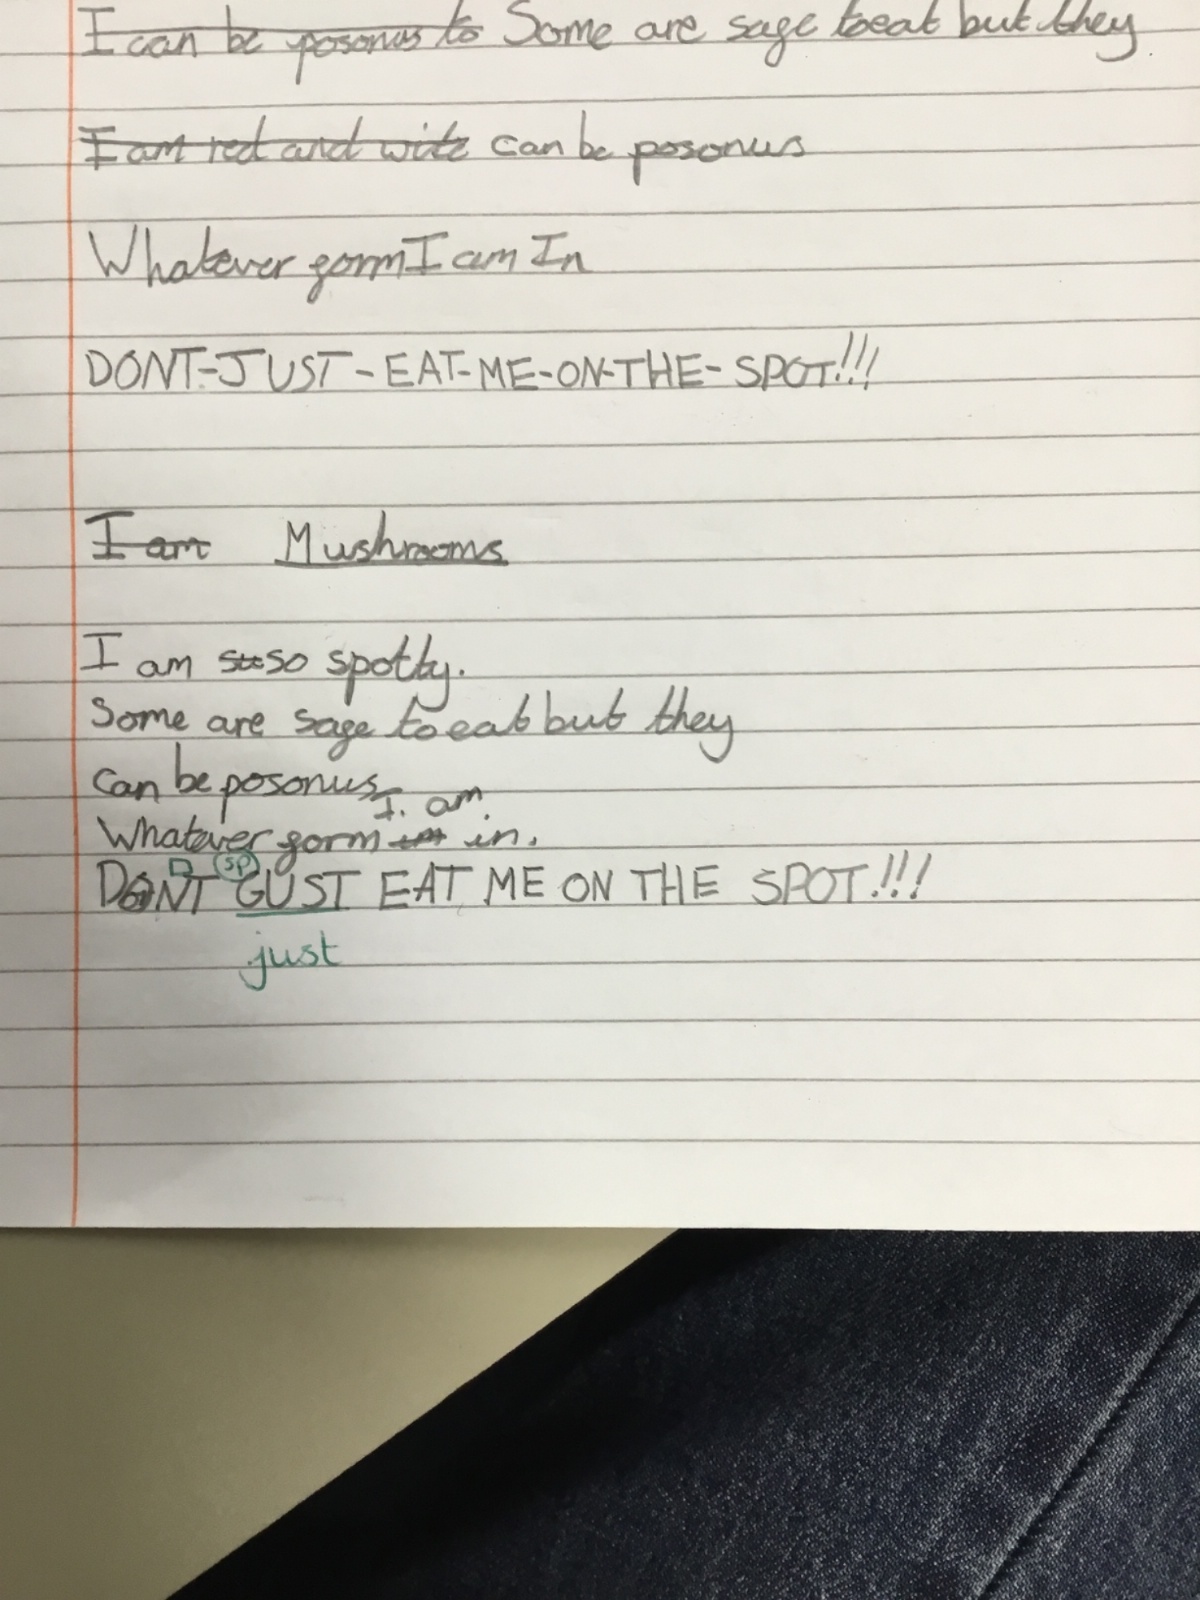 I can be posonus to Some are sage to eat but they
I am red and wite can be posonus
Whatever gorm I am In
DONT-JUST-EAT-ME-ON-THE-SPOT!!!
I am Mushrooms
I am so spotty.
Some are sage to eat but they
can be posonus
I am
Whatever gorm in.
DONT GUST EAT ME ON THE SPOT!!!
sp
just